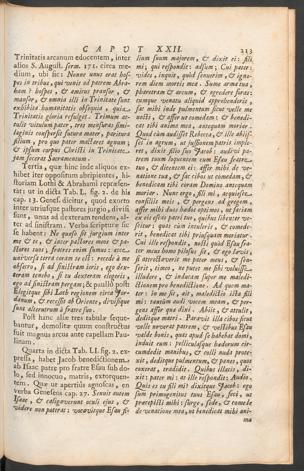 CAPUT XXII.
213
Trinitatis arcanum edocentem, inter
alios S. August. serm. 171. circa me-
dium, ubi sic: Nonne unus erat hos-
pes in tribus, qui venit ad patrem Abra-
ham? hospes, & amicus præsto,
mansor, & omnia illi in Trinitate sunt
exhibita humanitatis obsequia, quia
Trinitatis gloria refulget. Trimum at-
tulit vitulum pater, tres mensuras simi-
laginis consperse futura mater, paritura
filium, pro quo pater mactaret agnum:
& ipsum corpus Christi in Trinitate,
jam fecerat Sacramentum.
Tertia, quæ hinc inde aliquas ex-
hibet iter oppositum abripientes, hi-
storiam Lothi & Abrahami repræsen-
tat: ut in dicta Tab. L. fig. 2. de his
cap. 13. Genes. dicitur, quod exorto
inter utriusque pastores jurgio, divisi
sunt, unus ad dexteram tendens, al-
ter ad sinistram. Verba scripturæ sic
se habent: Ne quæso sit jurgium inter
me & te, & inter pastores meos & pa-
stores tuos; fratres enim sumus: ecce
universa terra coram te est: recede à me
obsecro, si ad sinistram ieris, ego dex-
teram tenebo, si tu dexteram elegeris,
ego ad sinistram pergam; & pauló post:
Elegitque sibi Loth regionem circa Jor-
danum, & recessit ab Oriente, divisique
sunt alterutrum à fratre suo.
Post hunc aliæ tres tabulæ seque-
bantur, demolitæ quum constructus
fuit magnus arcus ante capellam Pau-
linam.
Quarta in dicta Tab. LI. fig. 2. ex-
pressa, habet Jacob benedictionem
ab Isaac patre pro fratre Esau sub do-
lo, sed innocuo, matris, extorquen-
tem. Quæ ut apertius agnoscas, en
verba Geneseos cap. 27. Senuit autem
Isaac, & caligaverunt oculi ejus, &
videre non poterat: vocavitque Esau fi-
lium suum majorem, & dixit ei: fili
mi; qui respondit: adsum; Cui pater:
vides, inquit, quod senuerim, & igno-
rem diem mortis meæ. Sume arma tua,
pharetram & arcum, & egredere foras:
cumque venatu aliquid apprehenderis,
fac mihi inde pulmentum sicut velle me
nosti, & affer ut comedam: & benedi-
cat tibi anima mea, antequam moriar.
Quod cum audisset Rebecca, & ille abiis-
set in agrum, ut jussionem patris imple-
ret, dixit filio suo Jacob: audivi pa-
trem tuum loquentem cum Esau fratre
tuo, & dicentem ei: affer mihi de ve-
natione tua, & fac cibos ut comedam, &
benedicam tibi coram Domino antequam
moriar. Nunc ergo, fili mi, acquiesce
consiliis meis, & pergens ad gregem,
affer mihi duos hædos optimos, ut faciam
ex eis escas patri tuo, quibus libenter ve-
scitur: quas cùm intuleris, & comede-
rit, benedicat tibi priusquam moriatur.
Cui ille respondit, nosti quòd Esau fra-
ter meus homo pilosus sit, & ego lævis;
si attrectaverit me pater meus, & sen-
serit, timeo, ne putet me sibi voluisse
illudere, & inducam super me maledi-
ctionem pro benedictione. Ad quem ma-
ter: in me sit, ait, maledictio ista fili
mi: tantùm audi vocem meam, & per-
gens affer quæ dixi. Abiit, & attulit,
deditque matri. Paravit illa cibos sicut
velle noverat patrem, & vestibus Esau
valde bonis, quas apud se habebat domi,
induit eum: pelliculasque hædorum cir-
cumdedit manibus, & colli nuda prote-
xit, deditque pulmentum, & panes, quos
coxerat, tradidit. Quibus illatis, di-
xit: pater mi: at ille respondit: Audio.
Quis es tu fili mi? dixitque Jacob: ego
sum primogenitus tuus Esau, feci, ut
præcepisti mihi: surge, sede, & comede
de venatione mea, ut benedicat mihi ani-
ma